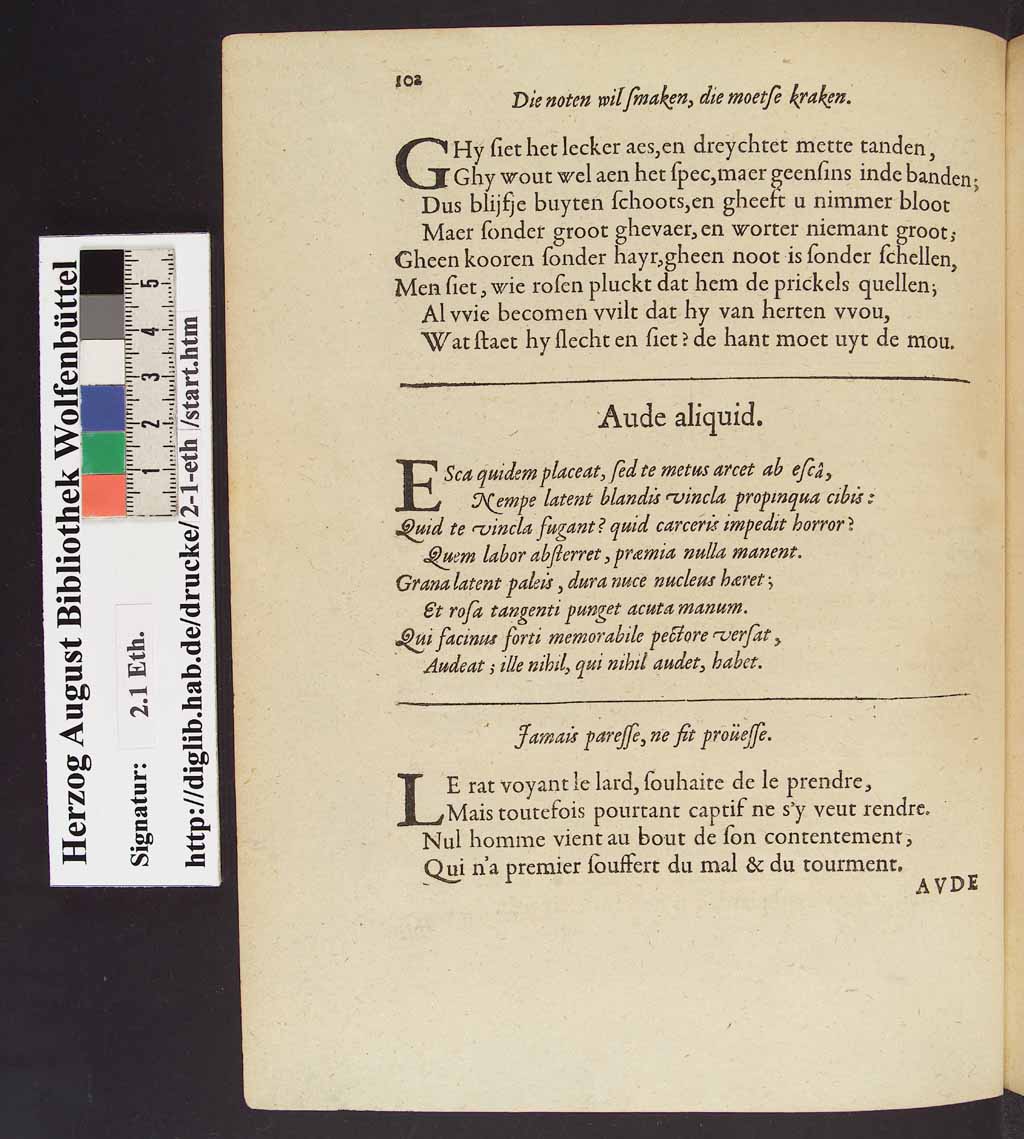 102
Die noten wil ſmaken, die moetſe kraken.
GHy ſiet het lecker aes, en dreychtet mette tanden,
Ghy wout wel aen het ſpec, maer geenſins inde banden;
Dus blijfje buyten ſchoots, en gheeft u nimmer bloot
Maer ſonder groot ghevaer, en worter niemant groot;
Gheen kooren ſonder hayr, gheen noot is ſonder ſchellen,
Men ſiet, wie roſen pluckt dat hem de prickels quellen;
Al vvie becomen vvilt dat hy van herten vvou,
Wat ſtaet hy ſlecht en ſiet? de hant moet uyt de mou.
Aude aliquid.
ESca quidem placeat, ſed te metus arcet ab eſcâ,
Nempe latent blandis vincla propinqua cibis:
Quid te vincla fugant? quid carceris impedit horror?
Quem labor abſterret, præmia nulla manent.
Grana latent paleis, dura nuce nucleus hæret;
Et roſa tangenti punget acuta manum.
Qui facinus forti memorabile pectore verſat,
Audeat; ille nihil, qui nihil audet, habet.
Jamais pareſſe, ne fit proüeſſe.
LE rat voyant le lard, ſouhaite de le prendre,
Mais toutefois pourtant captif ne s'y veut rendre.
Nul homme vient au bout de ſon contentement,
Qui n'a premier ſouffert du mal & du tourment.
AVDE
Herzog August Bibliothek Wolfenbüttel
Signatur: 2.1 Eth.
http://diglib.hab.de/drucke/2-1-eth/start.htm
1 2 3 4 5